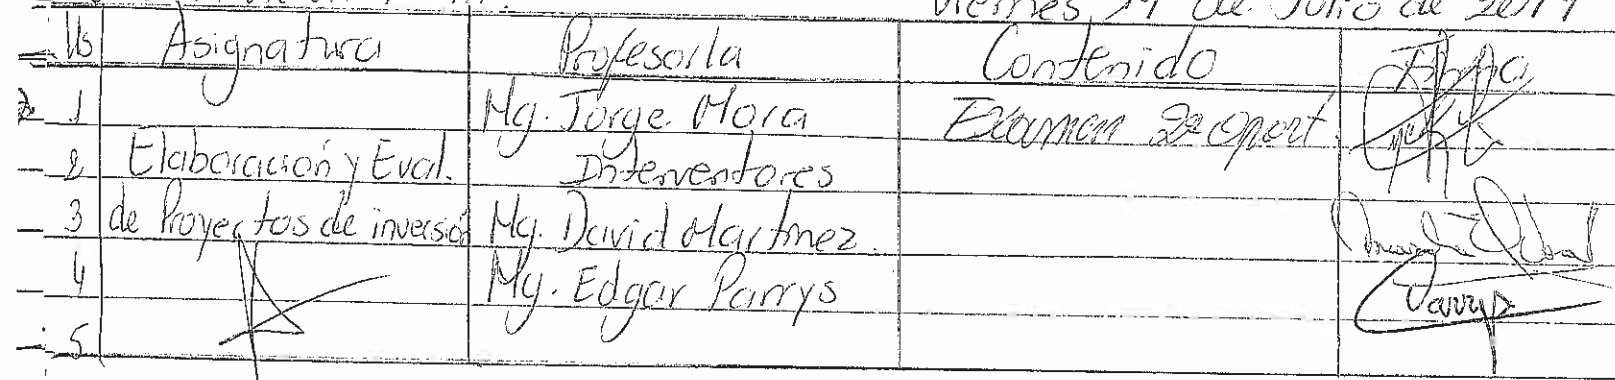 Viernes, 19 de Julio de 2019
Hs Asignatura Profesor/a Contenido Firma
1 Mg. Jorge Mora Examen 2da oport.
2 Elaboración y Eval. Interventores
3 de Proyectos de inversión Mg. David Martinez.
4 Mg. Edgar Parrys
5